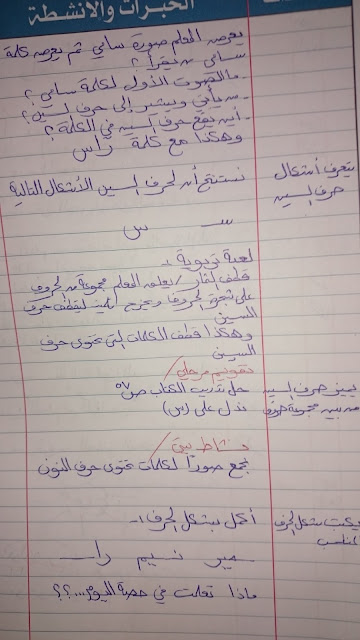 الخبرات والأنشطة
يعرض المعلم صورة سامي ثم يعرض كلمة
سامي من يقرأ؟
- ما الصوت الأول لكلمة سامي؟
- من يأتي ويشير إلى حرف السين؟
- أين يقع حرف السين في الكلمة؟
وهكذا مع كلمة رأس
يتعرف أشكال
حرف السين
نستنتج أن لحرف السين الأشكال التالية
سـ س
لعبة تربوية:-
قطف الثمار / يعلق المعلم مجموعة من الحروف
على شجرة الحروف ويخرج لقطف حرف
السين
وهكذا قطف الكلمات التي تحتوي حرف
السين
تقويم مرحلي/
يميز حرف السين
من بين مجموعة حروف
حل تدريب الكتاب ص٥٧
ندل على (س)
نشاط بيتي/
يجمع صورًا لكلمات تحتوي حرف النون
يكتب شكل الحرف
المناسب
أكمل بشكل الحرف:-
ـمير نسيم را
ماذا تعلمت في حصة اليوم...؟؟